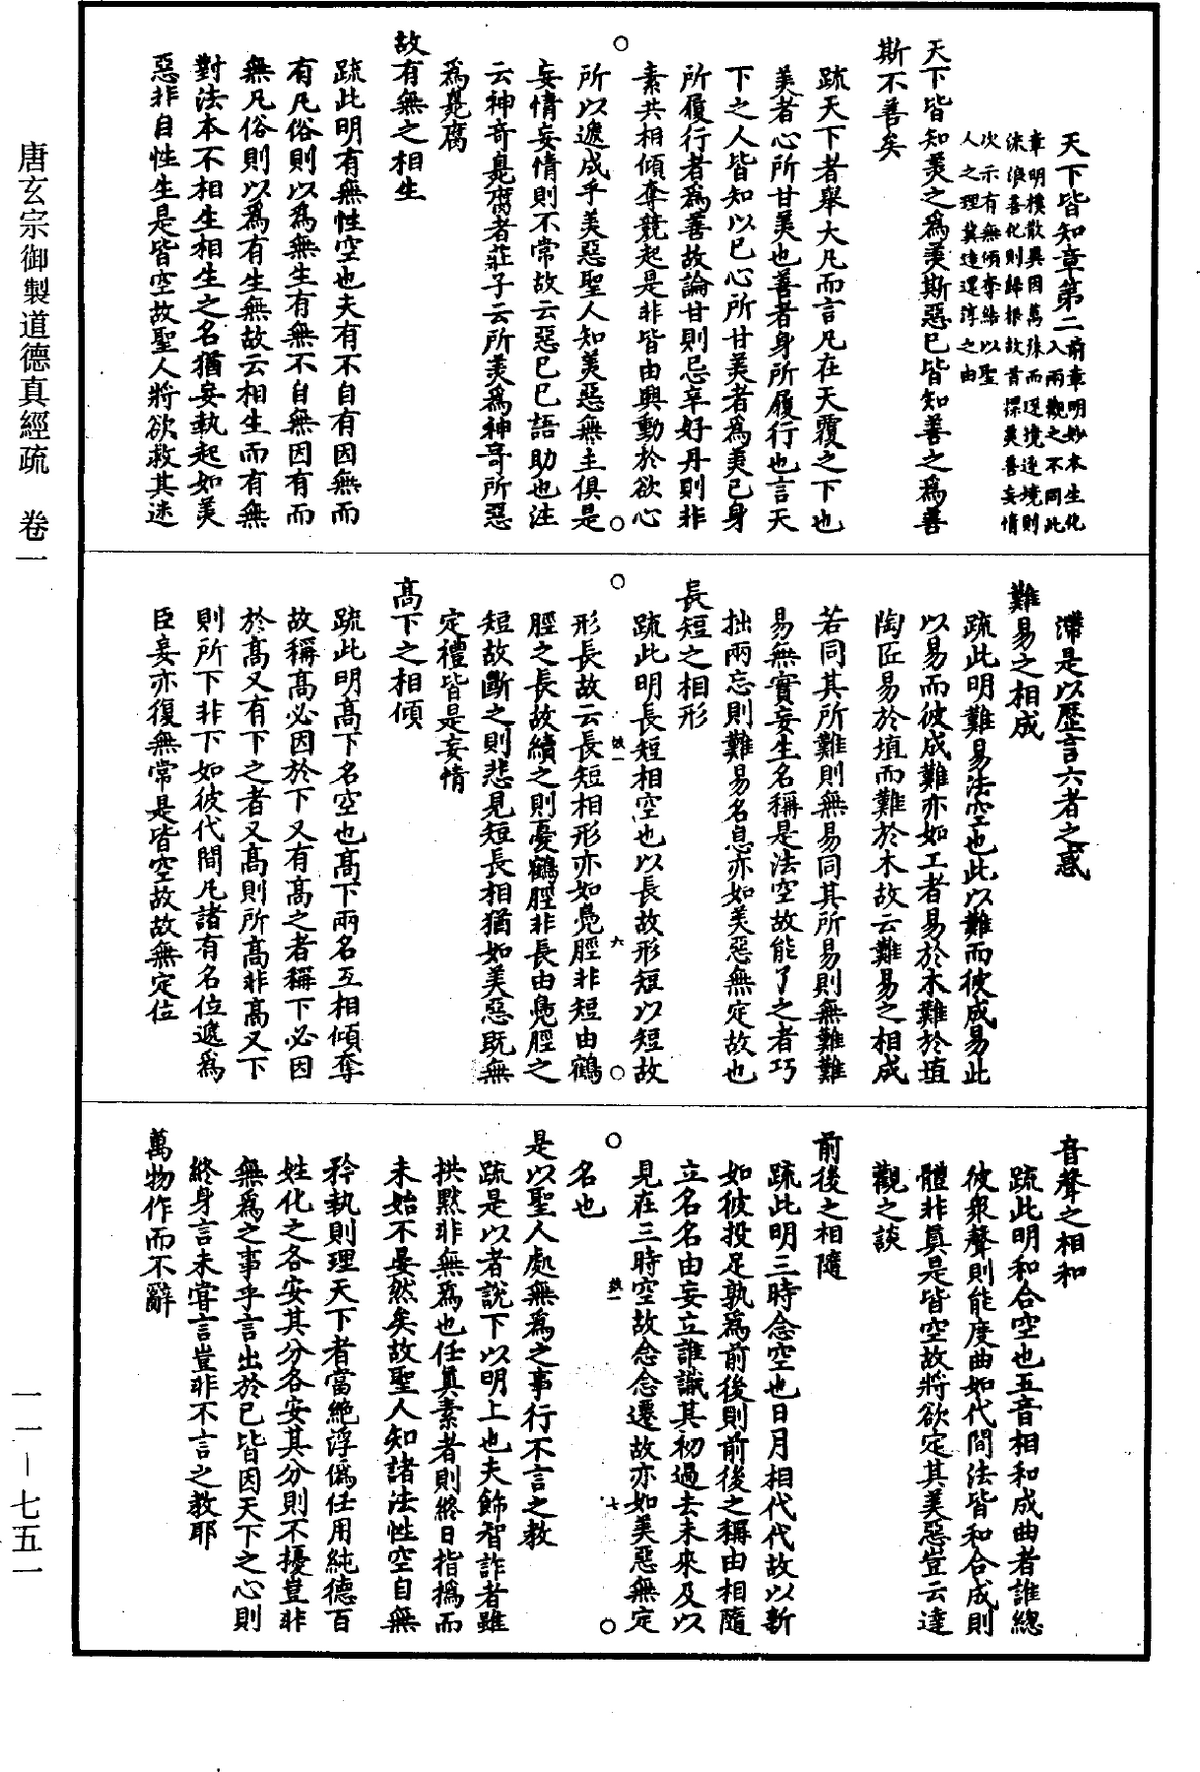 唐玄宗御製道德真經疏　卷一
一一—七五一
天下皆知章第二
前章明妙本生化入兩觀之不同此
章明樸散異因萬殊而逐境逐境則
流浪善化則歸根故首標美善妄情
次示有無傾奪結以聖
人之理冀達還淳之由
天下皆知美之為美斯惡已皆知善之為善
斯不善矣
疏天下者舉大凡而言凡在天覆之下也
美者心所甘美也善者身所履行也言天
下之人皆知以己心所甘美者為美己身
所履行者為善故論甘則忌辛好丹則非
素共相傾奪競起是非皆由興動於欲心
所以遞成乎美惡聖人知美惡無主俱是
妄情妄情則不常故云惡已已語助也注
云神奇臭腐者莊子云所美為神奇所惡
為臭腐
故有無之相生
疏此明有無性空也夫有不自有因無而
有凡俗則以為無生有無不自無因有而
無凡俗則以為有生無故云相生而有無
對法本不相生相生之名猶妄執起如美
惡非自性生是皆空故聖人將欲救其迷
滯是以歷言六者之惑
難易之相成
疏此明難易法空也此以難而彼成易此
以易而彼成難亦如工者易於木難於埴
陶匠易於埴而難於木故云難易之相成
若同其所難則無易同其所易則無難難
易無實妄生名稱是法空故能了之者巧
拙兩忘則難易名息亦如美惡無定故也
長短之相形
疏此明長短相空也以長故形短以短故
形長故云長短相形亦如鳧脛非短由鶴
脛之長故續之則憂鶴脛非長由鳧脛之
短故斷之則悲見短長相猶如美惡既無
定禮皆是妄情
高下之相傾
疏此明高下名空也高下兩名互相傾奪
故稱高必因於下又有高之者稱下必因
於高又有下之者又高則所高非高又下
則所下非下如彼代間凡諸有名位遞為
臣妾亦復無常是皆空故故無定位
音聲之相和
疏此明和合空也五音相和成曲者誰總
彼衆聲則能度曲如代間法皆和合成則
體非真是皆空故將欲定其美惡豈云達
觀之談
前後之相隨
疏此明三時念空也日月相代代故以新
如彼投足孰為前後則前後之稱由相隨
立名名由妄立誰識其初過去未來及以
見在三時空故念念遷故亦如美惡無定
名也
是以聖人處無為之事行不言之教
疏是以者說下以明上也夫飾智詐者雖
拱默非無為也任真素者則終日指撝而
未始不晏然矣故聖人知諸法性空自無
矜執則理天下者當絕浮偽任用純德百
姓化之各安其分各安其分則不擾豈非
無為之事乎言出於己皆因天下之心則
終身言未嘗言豈非不言之教耶
萬物作而不辭